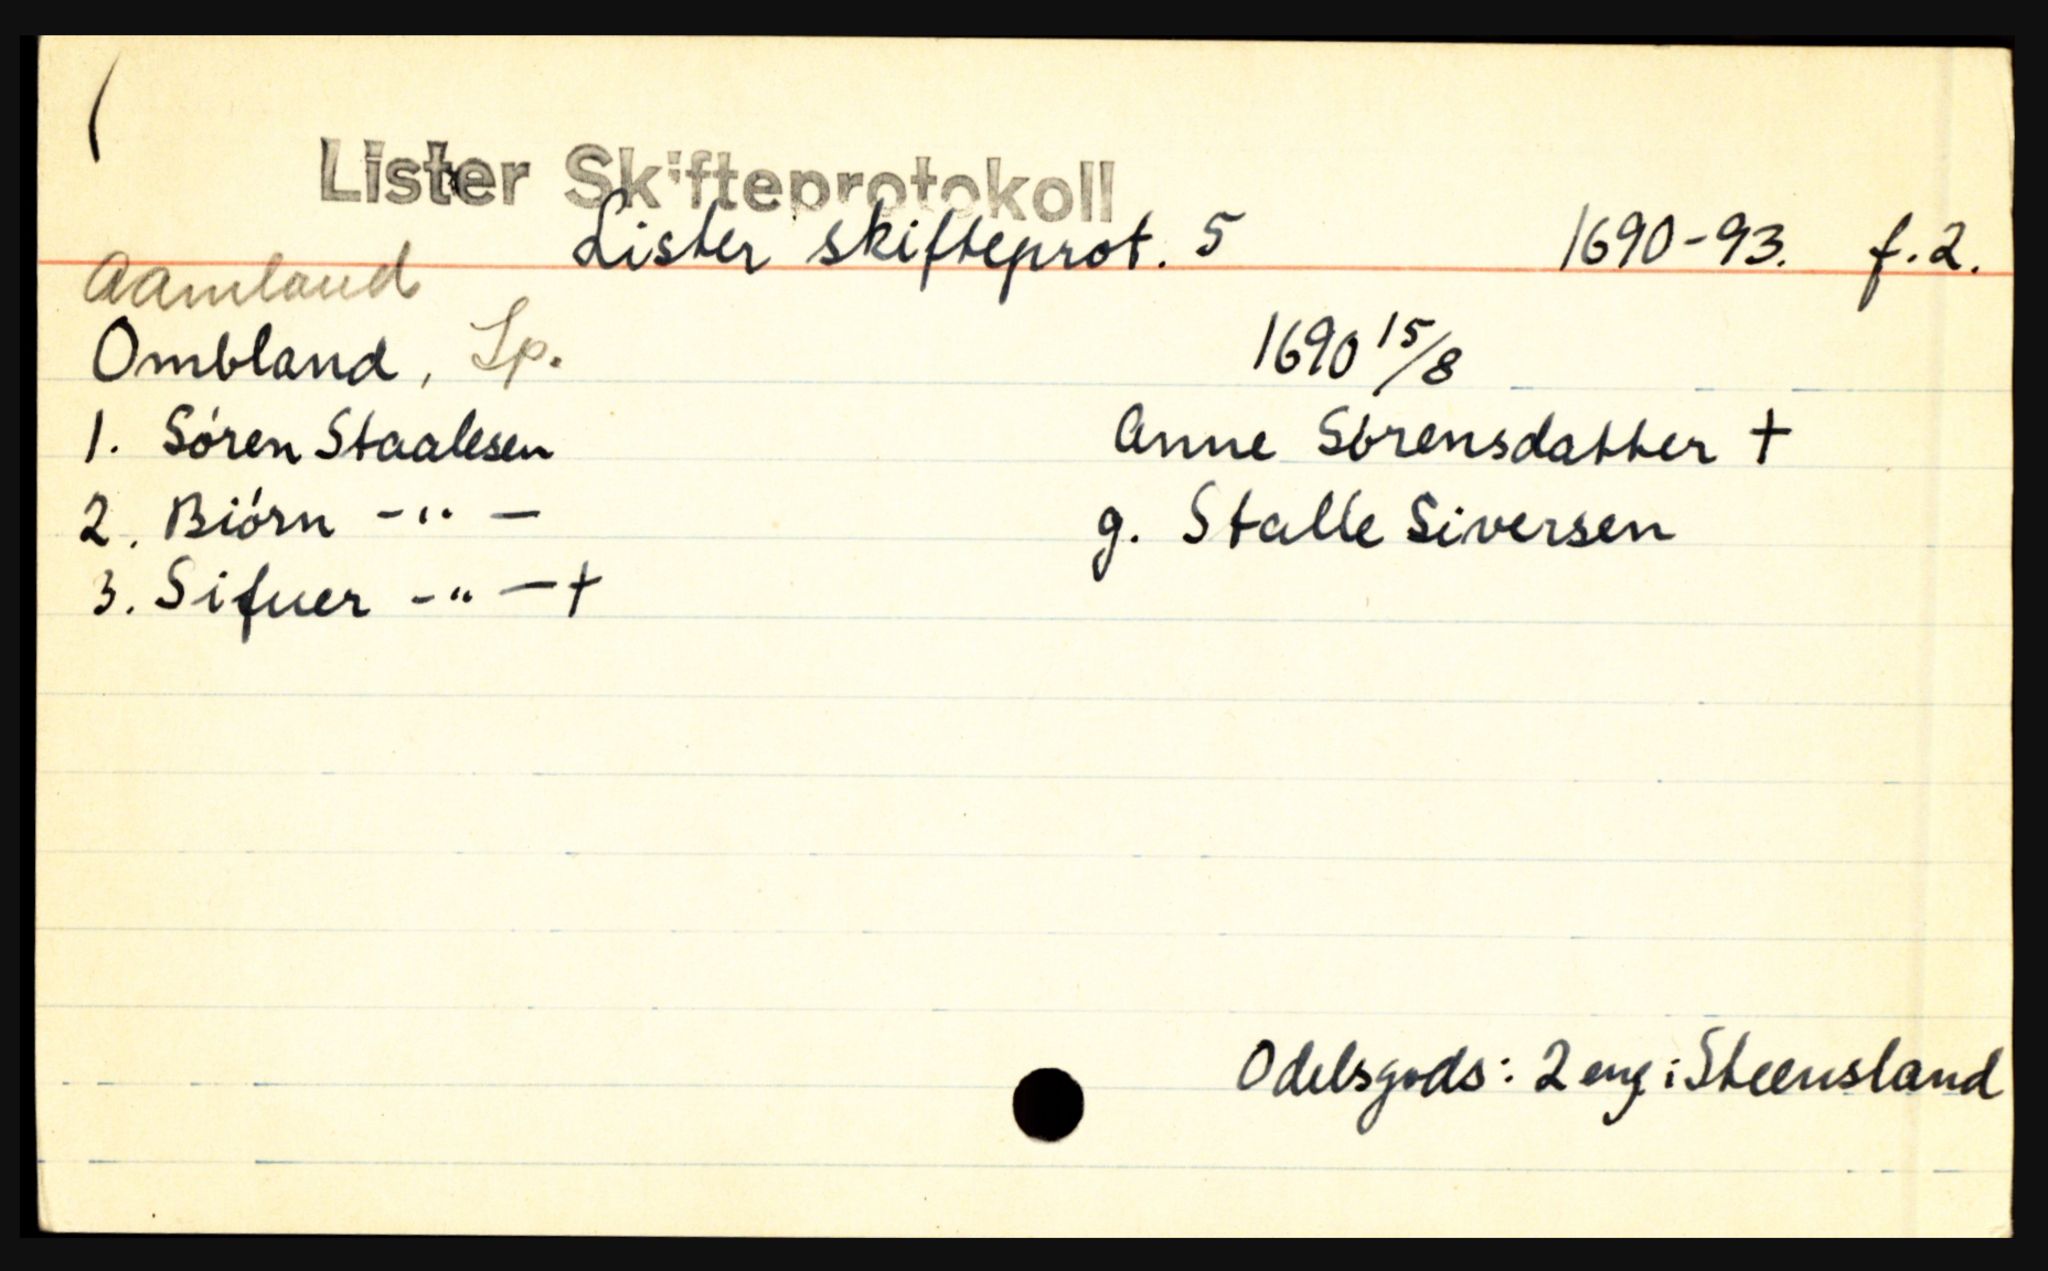 Lister Skifteprotokoll
Lister skifteprot. 5 1690-93. f. 2.
Aamland
Ombland, Lp. 1690 15/8
1. Sören Staalesen Anne Sörensdatter †
2. Biörn -"- g. Stalle Siversen
3. Sifuer -"- †
Odelsgods: 2 eng i Steensland